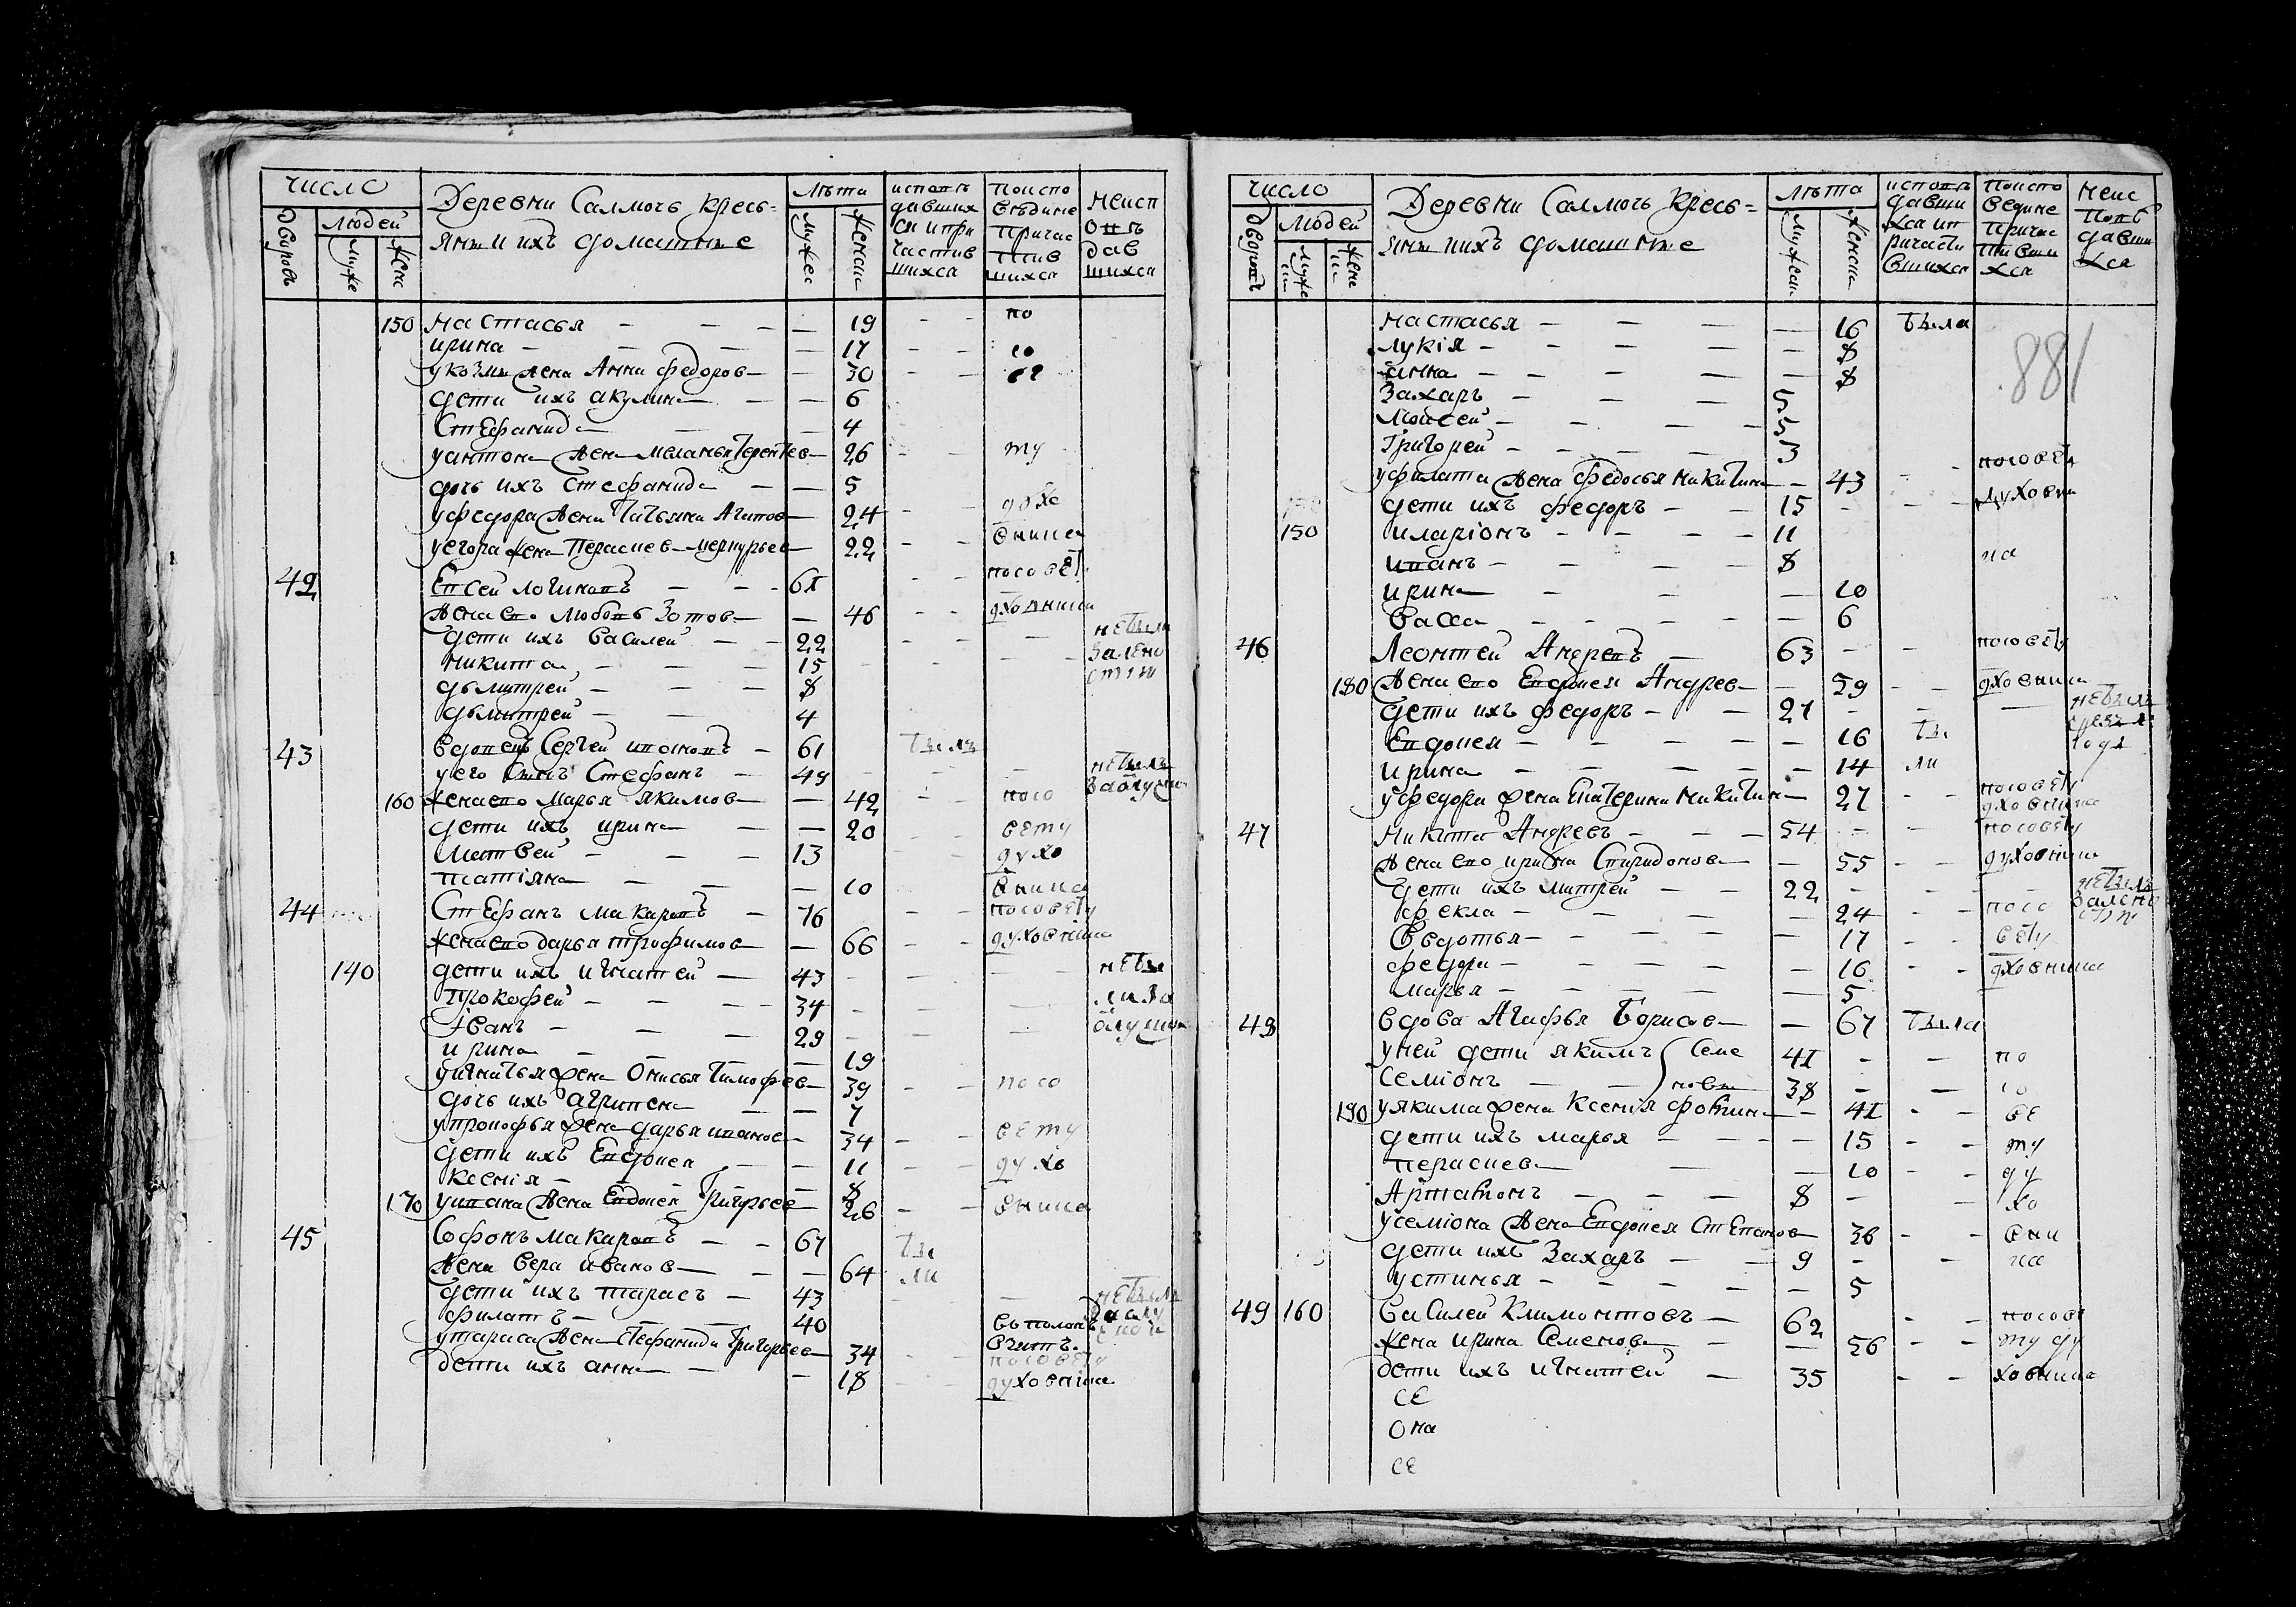 число
Деревни Саллмочь кресь=
яня и ихъ домашние
Лѣта
людей
дворовъ
муже
жен
мужес
женски
исповѣ
давших
ся и при
частив
шихся
По испо
вѣдине
причас
тив
шихся
неисп
овѣ
дав
шихся
150 настасья — 19 по
ирина — 17 со
у козмы жена Анна федоров — 30 ве
дети ихъ акулина — 6
Стефанида — 4
у антона жена меланья терентев — 26 ту
дочь ихъ Стефанида — 5
у федора жена татьяна Агапов — 24 духо
у егора жена Парасцев меркурьев — 22 вника
42 Евсей логиновъ — 61 посовѣту
жена ево любовь Зотов — 46 дховника
дети ихъ василей — 22 небыли
никита — 15 за лено
дьмитрей — 8 стию
дьмитрей — 4
43 вдовецъ Сергей ивановъ — 61 былъ
у его сынъ Стефанъ — 49 небылъ
160 жена ево марья якимов — 42 посо заблуди
дети ихъ ирина — 20 вету
матвей — 13 духо
татіяна — 10 вника
44 Стефанъ макаровъ — 76 посовѣту
жена ево дарья трофимов — 66 духовника
140 дети ихъ игнатей — 43 небы
Прокофей — 34 ли за
іванъ — 29 олучкою
ирина — 19
у игнатья жена Онисья тимофеев — 39 посо
дочь ихъ агрипена — 7
у прокофья жена дарья иванов — 34 вету
дети ихъ Евдокея — 11 духо
Ксенія — 8
170 у ивана жена Евдокея Григорьев — 26 вника
45 Софонъ макаровъ — 67 бы
жена вера иванов — 64 ли
дети ихъ тарасъ — 43 небыли
филатъ — 40
у тараса жена Стефанида Григорьев — 34 посовету
дети ихъ анна — 18 духовника
число
Деревни Саллмочь кресь=
яня и ихъ домашние
лѣта
людей
дворовъ
муже
жен
мужески
женски
исповѣ
давши
хся и п
ричасти
вшихся
По испо
ведине
причас
тивши
хся
неис
повѣ
давши
хся
881
настасья — 16 была
лукія — 8
анна — 8
Захаръ — 5
Мойсей — 3
Григорей — 3
у филата жена федосья никитина — 43 посовѣту
дети ихъ федоръ — 15 духовни
150 иларіонъ — 11
иванъ — 8 ка
ирина — 10
васса — 6
46 Леонтей Андревъ — 63 посовѣту
180 жена ево Евдокея Андрев — 59 дховника
дети ихъ федоръ — 27 небылъ
Евдокея — 16 бы
ирина — 14 ли
у федора жена Екатерина никитина — 27 посовѣту
духовника
47 никита Андреевъ — 54 посовѣту
жена ево ирина Спиридонов — 55 духовника
дети ихъ митрей — 22 небылъ
фекла — 24 посо за лено
Евдотья — 17 вѣту стию
федора — 16 дховника
марья — 5
48 вдова Агафья Борисов — 67 была
у ней дети якимъ Семе 41 по
Семіонъ новы 38 со
190 у якима жена Ксенія фотина — 41 ве
дети ихъ марья — 15 ту
Парасцев — 10 ду
Артамонъ — 8 хо
у семіона жена Евдокея Степанов — 36 вни
дети ихъ Захаръ — 9 ка
устинья — 5
49 160 василей Климонтовъ — 62 посове
жена ирина Семенов — 56 ту ду
дети ихъ игнатей — 35 ховника
се
она
се